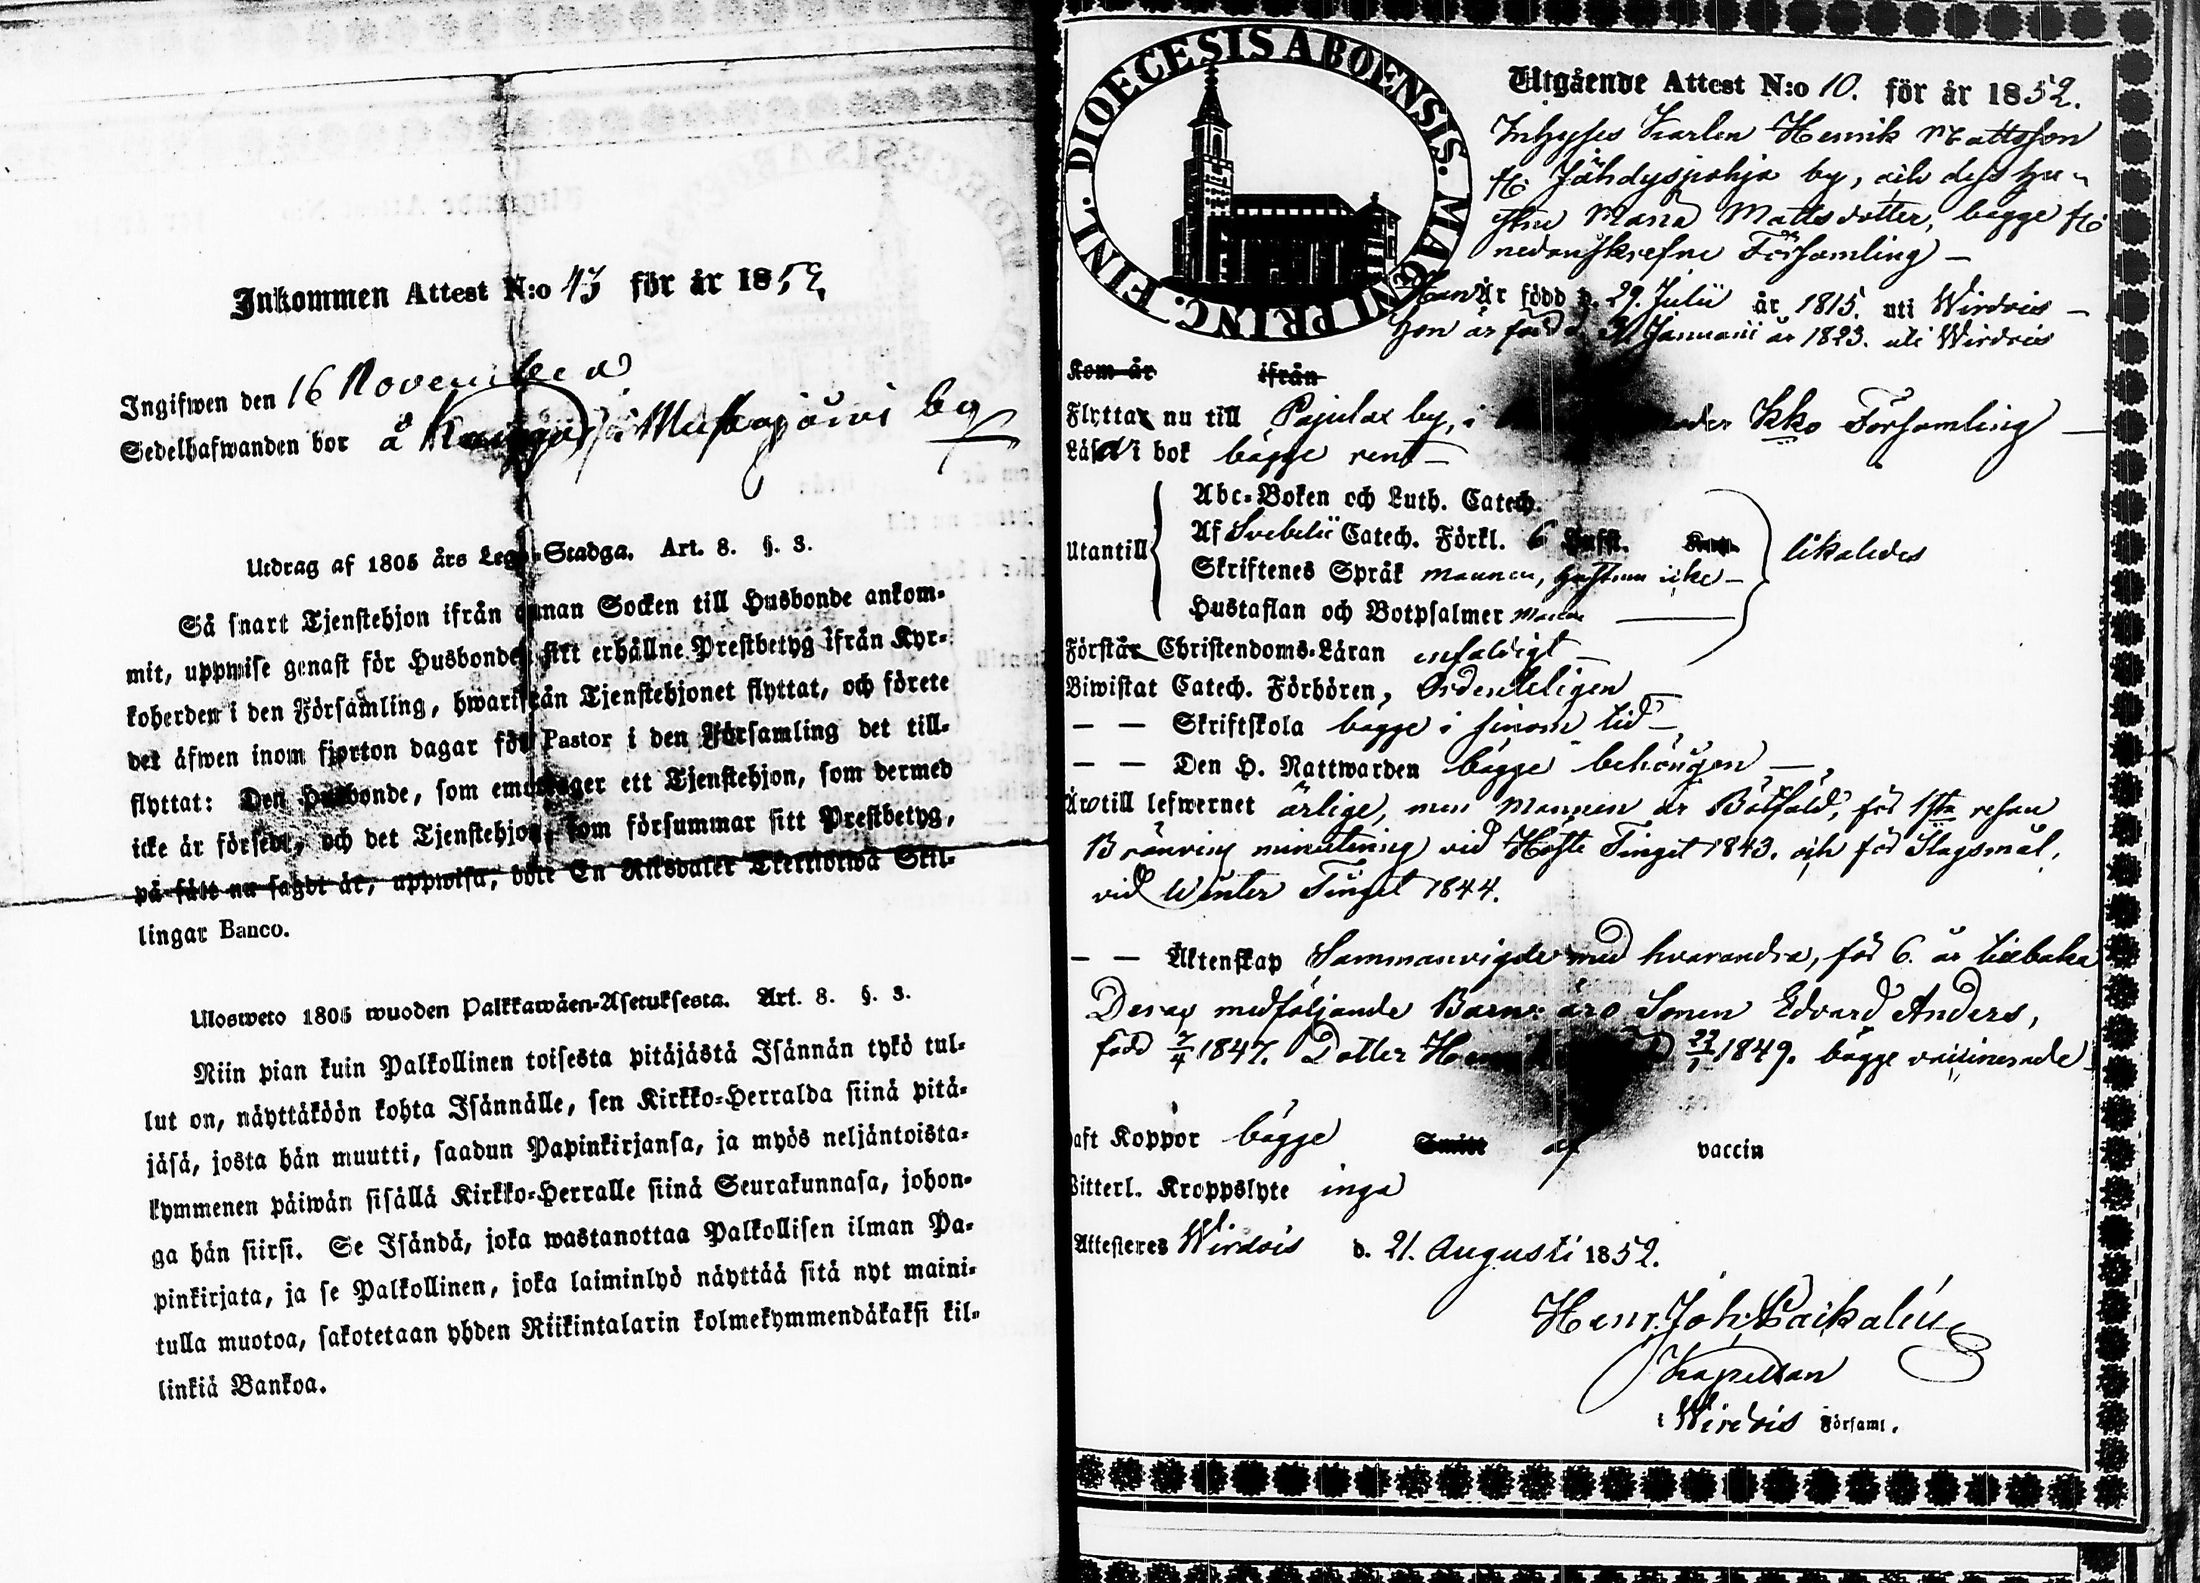 Inkommen Attest N:o 43 för år 1852.
Ingifwen den 16 November
Sedelhafwanden bor å i Mustajärvi by
Utdrag af 1805 års Lego-Stadga. Art. 8. §. 3.
Så snart Tjenstehjon ifrån annan Socken till Husbonde ankom-
mit, uppwise genast för Husbonden sitt erhållne Prestbetyg ifrån Kyr-
koherden i den Församling, hwarifrån Tjenstehjonet flyttat, och förete
det äfwen inom fjorton dagar för Pastor i den Församling det till-
flyttat: Den Husbonde, som emottager ett Tjenstehjon, som dermed
icke är försedt, och det Tjenstehjon, som försummar sitt Prestbetyg,
på sätt nu sagdt är, uppwisa, böte En Riksdaler Trettiotwå Skil-
lingar Banco.
Ulosweto 1805 wuoden Palkkawäen-Asetuksesta. Art. 8. §. 3.
Niin pian kuin Palkollinen toisesta pitäjästä Isännän tykö tul-
lut on, näyttäköön kohta Isännälle, sen Kirkko-Herralda siinä pitä-
jäsä, josta hän muutti, saadun Papinkirjansa, ja myös neljäntoista-
kymmenen päiwän sisällä Kirkko-Herralle siinä Seurakunnasa, johon-
ga hän siirsi. Se Isändä, joka wastanottaa Palkollisen ilman Pa-
pinkirjata, ja se Palkollinen, joka laiminlyö näyttää sitä nyt maini-
tulla muotoa, sakotetaan yhden Riikintalarin kolmekymmendäkaksi kil-
linkiä Bankoa.
DIOECESIS ABOENSIS. MAGNI PRINC. FINL.
Utgående Attest N:o 10. för år 1852.
Inhyses Karlen Henrik Mattsson
fr. Jähdyspohja by, och dess hu-
stru Maria Mattsdotter, bägge fr.
nedanskrefne Församling —
Han Är född d. 29. Julii år 1815. uti Wirdois —
hon är född d. 31 Januarii år 1823. uti Wirdois
Kom år ifrån
Flytta nu till Pajulax by, i Kko Församling —
Läsa i bok bägge rent —
Utantill
Abc-Boken och Luth. Catech.
Af Svebelii Catech. Förkl. 6 Hufst.
Skriftenes Språk mannen, hustrun icke —
Hustaflan och Botpsalmer
likaledes
Förstår Christendoms-Läran enfaldigt —
Biwistat Catech. Förhören, Ordenteligen —
— — Skriftskola bägge i sinom tid —
— — Den H. Nattwarden bägge behörigen —
Äro till lefwernet ärlige, men Mannen är Bötfäld, för 1sta resan
Bränvins minutering vid Höste Tinget 1843. och för Slagsmål,
vid Winter Tinget 1844.
— — Äktenskap Sammanvigde med hvarandra, för 6. år tillbaka
Deras medföljande Barn äro Sonen Edvard Anders,
född 7/4 1847. Dotter 23/1 1849. bägge vaccinerade
Haft Koppor bägge Smitt af vaccin
Witterl. Kroppslyte inga
Attesteres Wirdois d. 21. Augusti 1852.
Henr. Joh.
Kapellan
i Wirdois Församl.